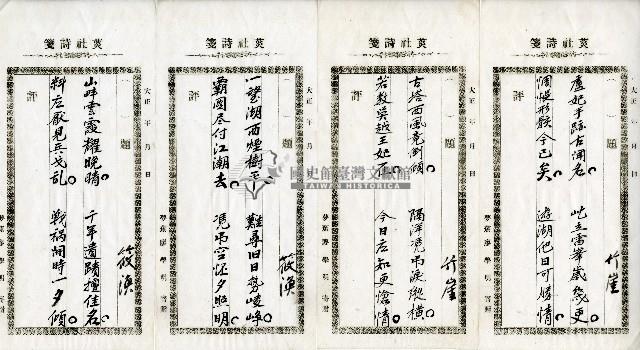 英社詩箋
大正 年 月 日
題
妃手跡古湖名 屹立雷峯歲幾更
形骸今已矣 遊湖他日可勝情
竹崖
評
英社詩箋
大正 年 月 日
題
古塔西風竟到傾 隔洋憑弔淚縱橫
若教吳越王如在 今日應知更愴情
竹崖
評
英社詩箋
大正 年 月 日
題
一望湖西煙樹平 難尋旧日勢崚崢
霸圖尽付江潮去 憑弔空懷夕照明
筱漁
評
英社詩箋
大正 年 月 日
題
山畔雲霞耀晚晴 千年遺蹟擅佳名
料應厭見兵戈乱 戰禍開時一夕傾
筱漁
評
國史館臺灣文獻館
TAIWAN HISTORICA